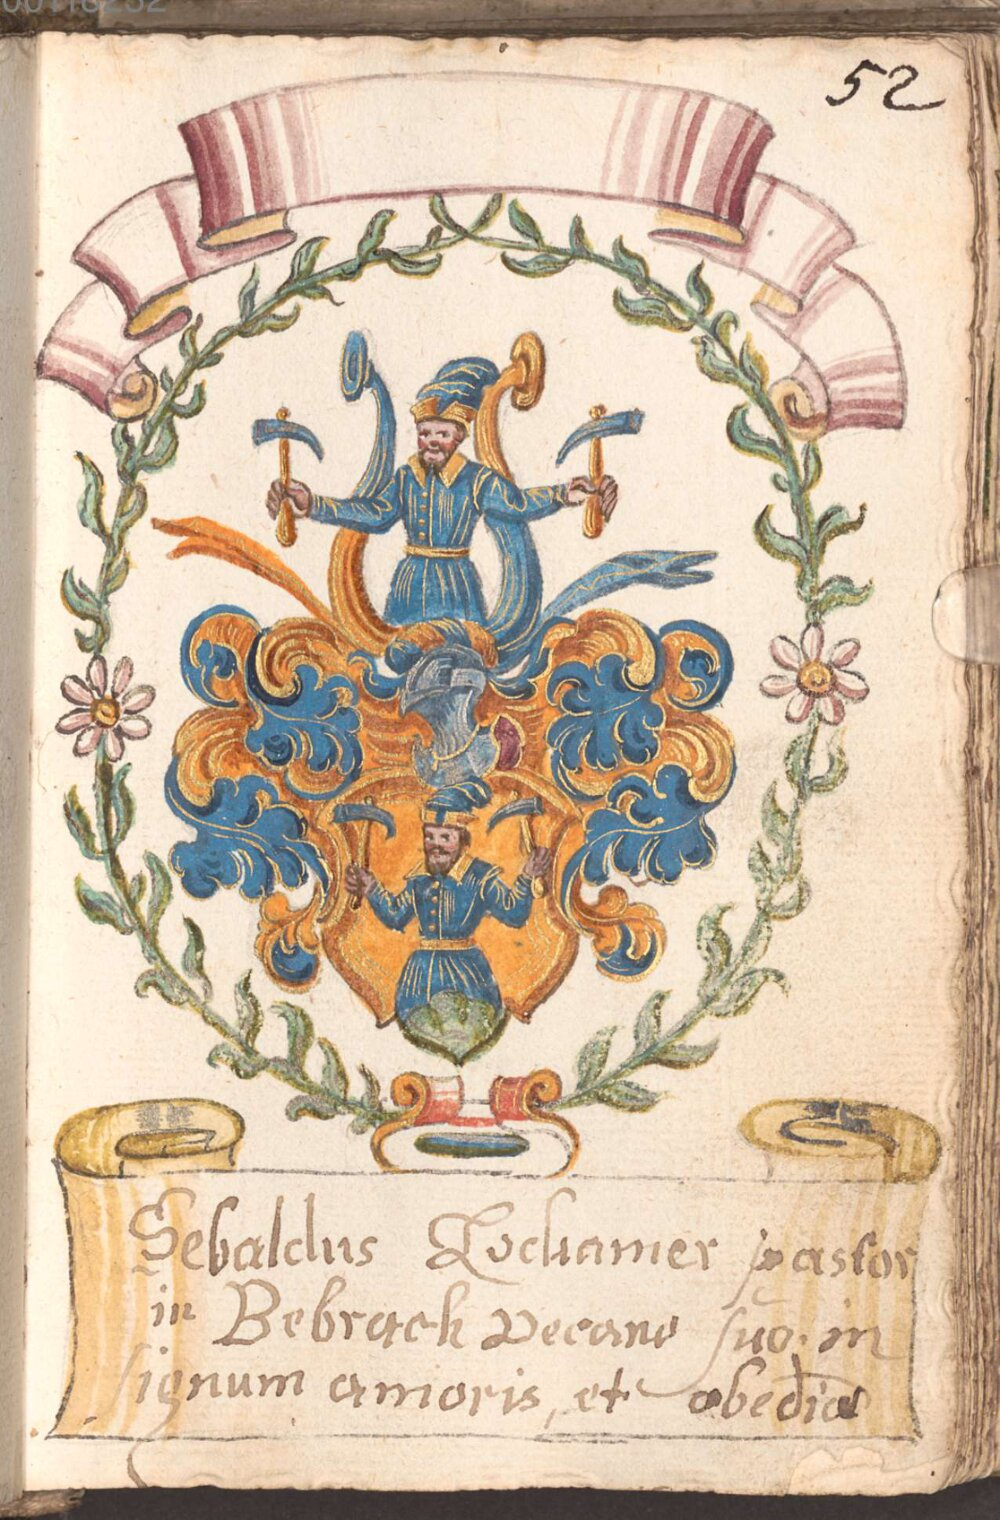 52
Sebaldus Lochamer pastor
in Bebrach Decano suo. in
signum amoris, et obediā